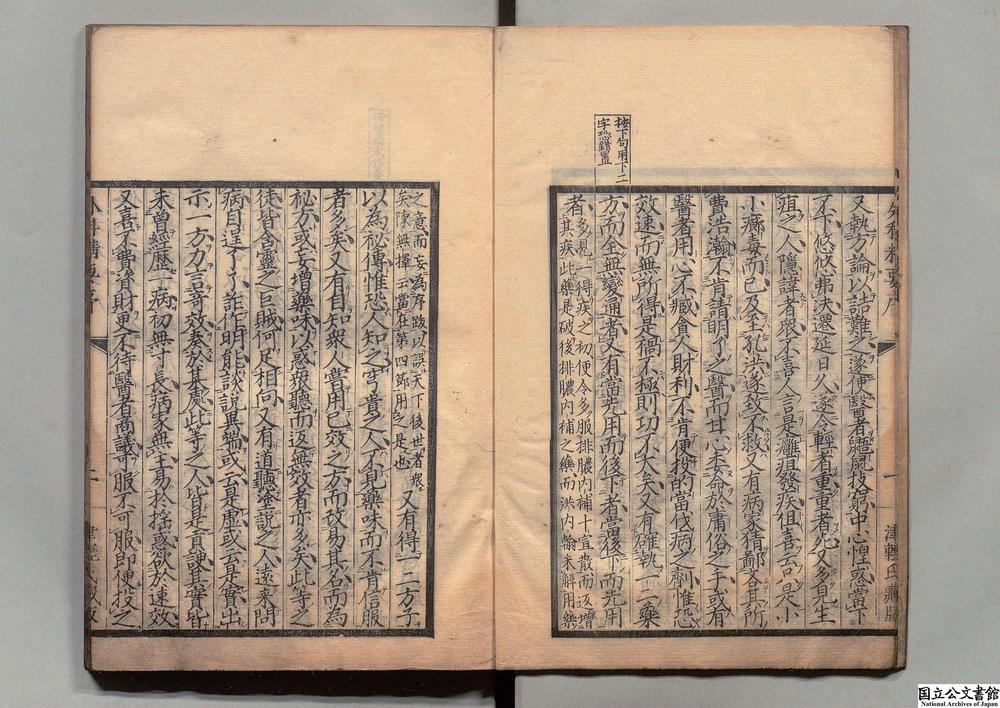 按下句用下二
字恐錯置
又執方論以詰難之遂使醫者鼯鼠技窮中心惶惑當下
不下悠悠弗决遷延日久遂令輕者重重者死又多見生
疽之人隱諱者衆不喜人言是癰疽發疾但喜云只是小
小癤毒而已及至孔洪遂致不救又有病家猜鄙吝其所
費浩瀚不肯請明了之醫而甘心委命於庸俗之手或有
醫者用心不臧貪人財利不肯便投的當伐病之劑惟恐
效速而無所得是禍不極則功不大矣又有確執一二藥
方而全無變通者又有當先用而後下者當後下而先用
者多見一得疾之初便令多服排膿内補十宣散而返增
其疾此藥是破後排膿内補之藥而洪内翰未解用藥
一
津輕氏藏版
之意而妄為序跋以誤天下後世者衆
矣陳無擇云當在第四節用之是也又有得一二方子
以為秘傳惟恐人知之穹貴之人不見藥味而不肯信服
者多矣又有自知衆人嘗用已效之方而改易其名而為
秘方或妄增藥味以惑衆聽而返無效者亦多矣此等之
徒皆含靈之巨賊何足相向又有道聽塗說之人遠來問
病自逞了了詐作明能談說異端或云是虛或云是實出
示一方力言奇效奏於某處此等之人皆是貢諛其實皆
未曾經歷一病初無寸長病家無主易於摇惑欲於速效
又喜不費資財更不待醫者商議可服不可服即便投之
二